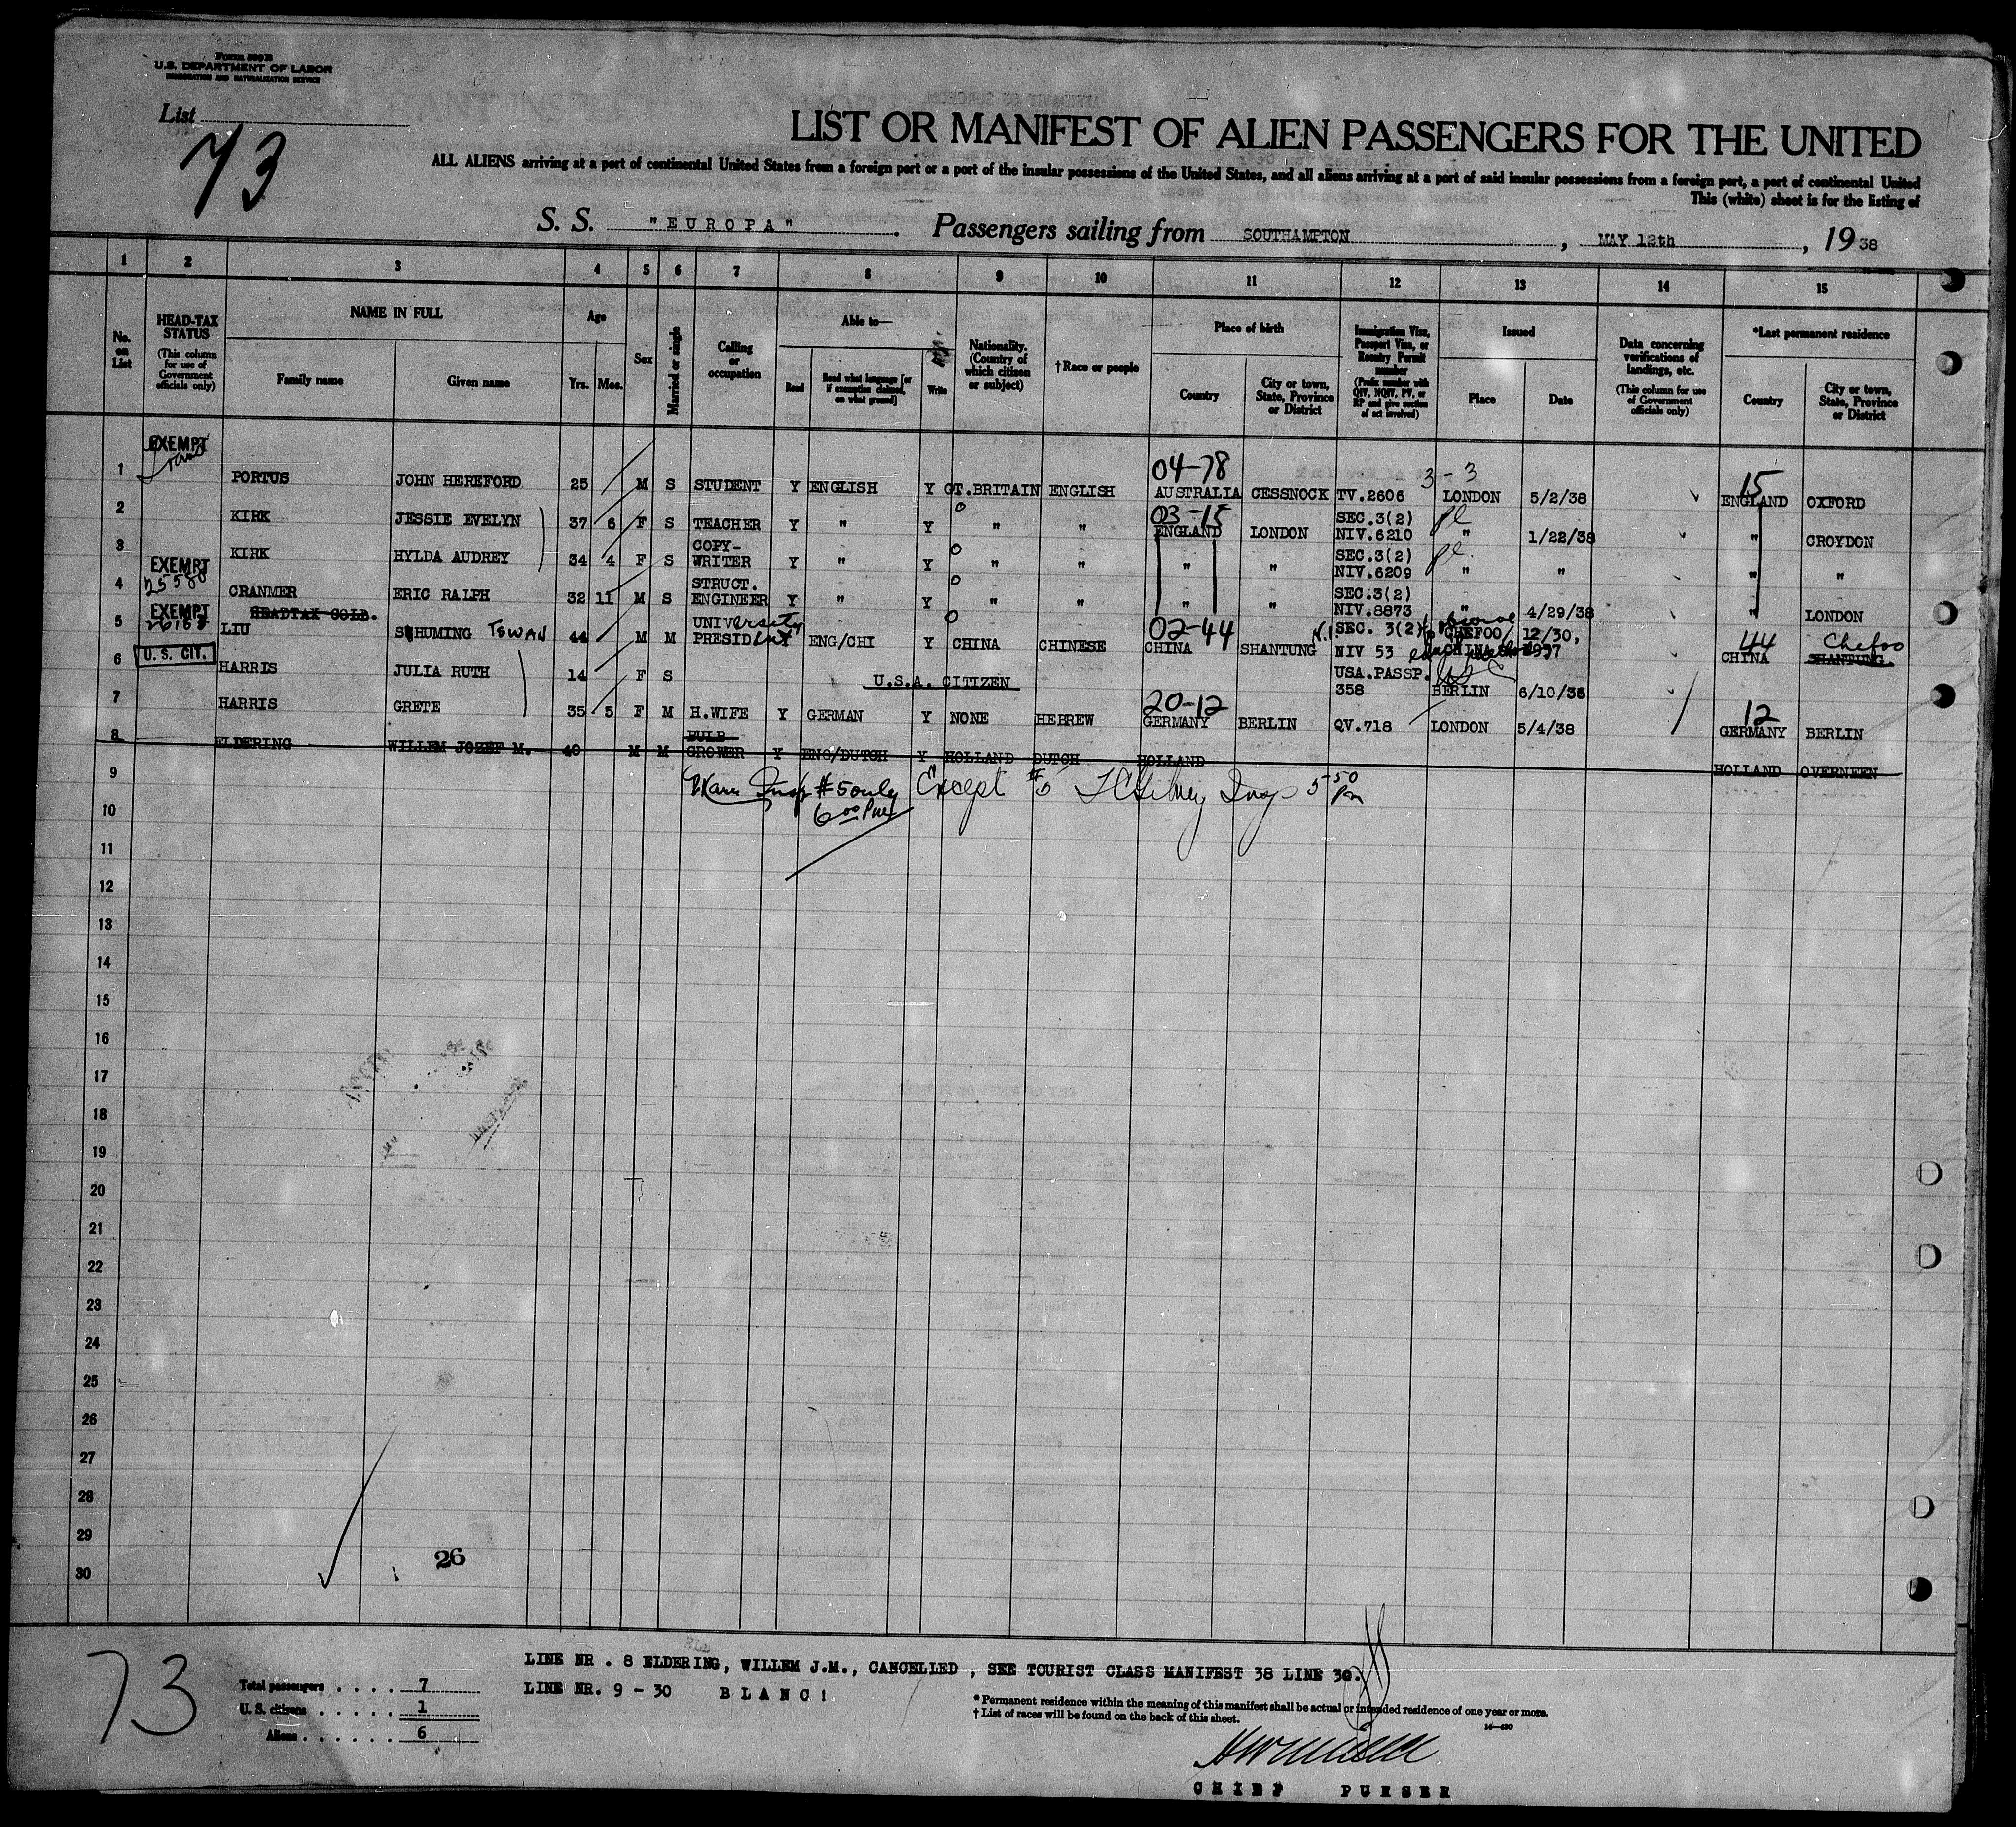 Form 500 B
U.S. DEPARTMENT OF LABOR
IMMIGRATION AND NATURALIZATION SERVICE
List
73
LIST OR MANIFEST OF ALIEN PASSENGERS FOR THE UNITED
ALL ALIENS arriving at a port of continental United States from a foreign port or a port of the insular possessions of the United States, and all aliens arriving at a port of said insular possessions from a foreign port, a port of continental United
This (white) sheet is for the listing of
S. S. "EUROPA". Passengers sailing from SOUTHAMPTON, MAY 12th, 1938
1 2 3 4 5 6 7 8 9 10 11 12 13 14 15
No. on List
HEAD-TAX STATUS (This column for use of Government officials only)
NAME IN FULL
Family name Given name
Age Yrs. Mos.
Sex
Married or single
Calling or occupation
Able to—
Read Read what language [or if exemption claimed, on what ground] Write
Nationality. (Country of which citizen or subject)
†Race or people
Place of birth
Country City or town, State, Province or District
Immigration Visa, Passport Visa, or Reentry Permit number (Prefix number with QIV, NQIV, PV, or RP and give section of act involved)
Issued
Place Date
Data concerning verifications of landings, etc. (This column for use of Government officials only)
*Last permanent residence
Country City or town, State, Province or District
EXEMPT 04-78 3-3 15
1 PORTUS JOHN HEREFORD 25 M S STUDENT Y ENGLISH Y GT.BRITAIN ENGLISH AUSTRALIA CESSNOCK TV.2606 LONDON 5/2/38 ENGLAND OXFORD
03-15 SEC.3(2)
2 KIRK JESSIE EVELYN 37 6 F S TEACHER Y " Y " " ENGLAND LONDON NIV.6210 " 1/22/38 " CROYDON
COPY- SEC.3(2)
3 KIRK HYLDA AUDREY 34 4 F S WRITER Y " Y " " " " NIV.6209 " " " "
EXEMPT
25580 STRUCT. SEC.3(2)
4 CRANMER ERIC RALPH 32 11 M S ENGINEER Y " Y " " " " NIV.8873 " 4/29/38 " LONDON
EXEMPT HEADTAX COLD.
26188 UNIVersity 02-44 SEC. 3(2) CHEFOO/ 12/30, 44 Chefoo
5 LIU SHUMING TSWAN 44 M M PRESIDent Y ENG/CHI Y CHINA CHINESE CHINA SHANTUNG NIV 53 CHINA 1937 CHINA SHANTUNG.
U. S. CIT. USA.PASSP.
6 HARRIS JULIA RUTH 14 F S U.S.A. CITIZEN 358 BERLIN 6/10/36
20-12 12
7 HARRIS GRETE 35 5 F M H.WIFE Y GERMAN Y NONE HEBREW GERMANY BERLIN QV.718 LONDON 5/4/38 GERMANY BERLIN
BULB
8 ELDERING WILLEM JOZEF M. 40 M M GROWER Y ENG/DUTCH Y HOLLAND DUTCH HOLLAND HOLLAND OVERNEEN
9 Insp #5 only Except #5 Insp 5 50 Pm
10 6 00 Pm
11
12
13
14
15
16
17
18
19
20
21
22
23
24
25
26
27
28
29
30
26
73
LINE NR . 8 ELDERING, WILLEM J.M., CANCELLED , SEE TOURIST CLASS MANIFEST 38 LINE 30.
LINE NR. 9 - 30 B L A N C !
Total passengers . . . . 7
U. S. citizens . . . . . 1
Aliens . . . . . . 6
* Permanent residence within the meaning of this manifest shall be actual or intended residence of one year or more.
† List of races will be found on the back of this sheet.
CHIEF PURSER